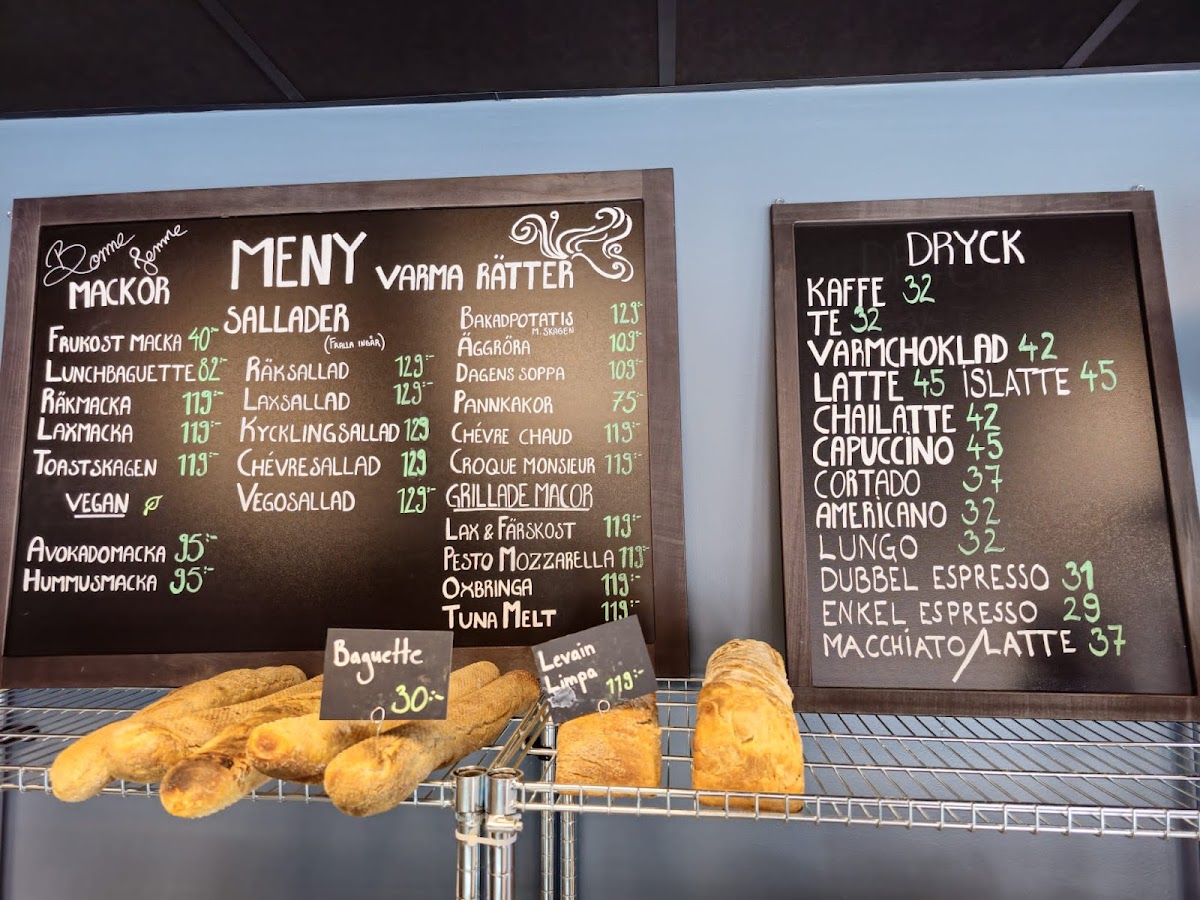 Bonne
Femme
MACKOR
FRUKOST MACKA 40:-
LUNCHBAGUETTE 82:-
RÄKMACKA 119:-
LAXMACKA 119:-
TOASTSKAGEN 119:-
VEGAN
AVOKADOMACKA 95:-
HUMMUSMACKA 95:-
MENY
SALLADER
(FRALLA INGÅR)
RÄKSALLAD 129:-
LAXSALLAD 129:-
KYCKLINGSALLAD 129
CHÉVRESALLAD 129
VEGOSALLAD 129:-
VARMA RÄTTER
BAKADPOTATIS 129:-
M. SKAGEN
ÄGGRÖRA 109:-
DAGENS SOPPA 109:-
PANNKAKOR 75:-
CHÉVRE CHAUD 119:-
CROQUE MONSIEUR 119:-
GRILLADE MACOR
LAX & FÄRSKOST 119:-
PESTO MOZZARELLA 119:-
OXBRINGA 119:-
TUNA MELT 119:-
DRYCK
KAFFE 32
TE 32
VARMCHOKLAD 42
LATTE 45 ISLATTE 45
CHAILATTE 42
CAPUCCINO 45
CORTADO 37
AMERICANO 32
LUNGO 32
DUBBEL ESPRESSO 31
ENKEL ESPRESSO 29
MACCHIATO/LATTE 37
Baguette
30:-
Levain
Limpa 119:-